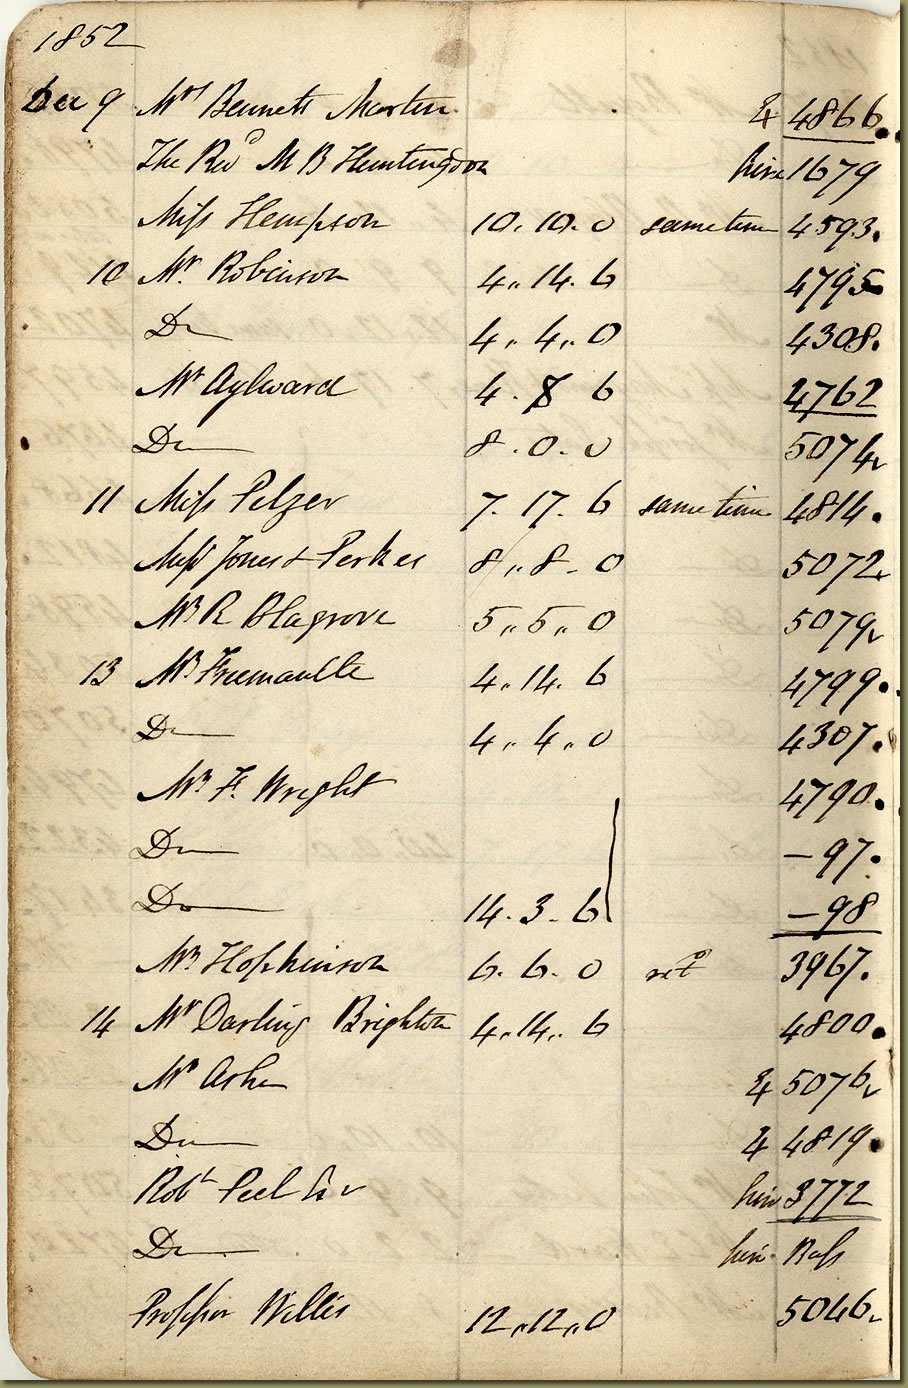 1852
Dec 9 Mrs Bennett Martin 4866.
The Revd M B Huntingdon hire 1679
Miss Hempson 10. 10. 0 same time 4593.
10 Mr. Robinson 4,, 14. 6 4795
Do 4,, 4,, 0 4308.
Mr Aylward 4. 8 6 4762
Do 8. 0. 0 5074
11 Miss Pelzer 7. 17. 6 same time 4814.
Messrs Jones & Perkes 8,, 8 - 0 5072
Mr R Blagrove 5,, 5,, 0 5079
13 Mr Fremaulte 4,, 14. 6 4799.
Do 4,, 4,, 0 4307.
Mr F. Wright 4790.
Do – 97.
Do 14. 3. 6 – 98
Mr Hopkinson 6. 6. 0 retd 3967.
14 Mr Darling Brighton 4. 14,, 6 4800.
Mr Ashe 5076
Do 4819.
Robt Peel Esqr hire 3772
Do hire Bass
Professor Willis 12,, 12,, 0 5046